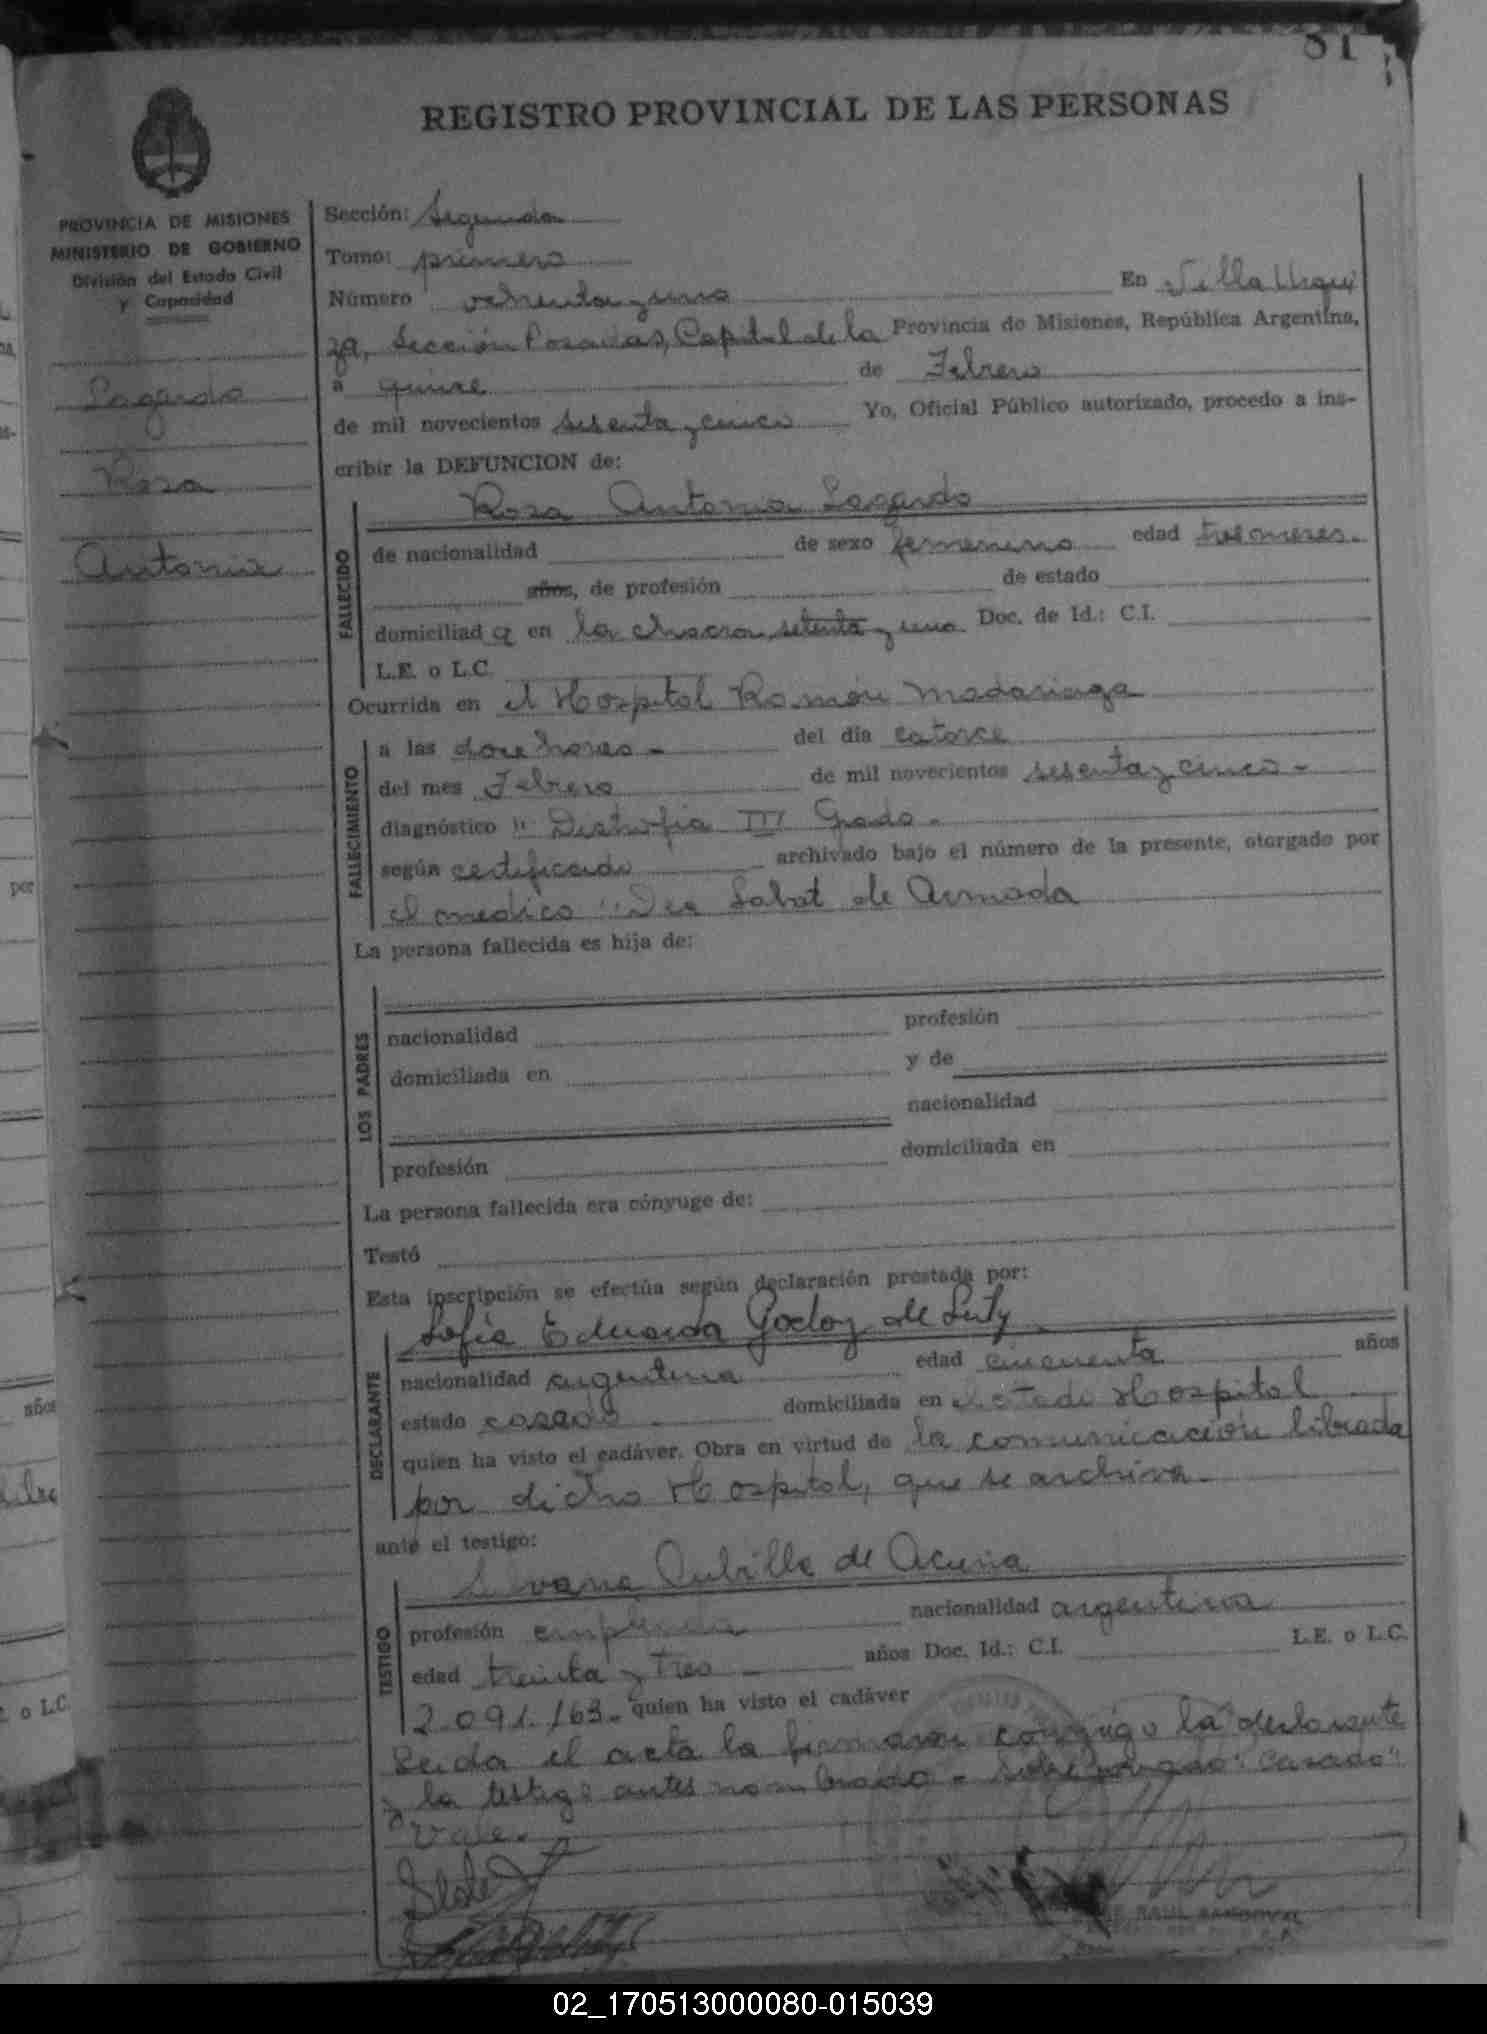 81
REGISTRO PROVINCIAL DE LAS PERSONAS
PROVINCIA DE MISIONES
MINISTERIO DE GOBIERNO
División del Estado Civil
y Capacidad
Rosa
Antonia
Sección: Segunda
Tomo: primero
Número ochenta y uno En Villa Urqui
za, Sección Posadas, Capital de la Provincia de Misiones, República Argentina,
a quince de Febrero
de mil novecientos sesenta y cinco Yo, Oficial Público autorizado, procedo a ins-
cribir la DEFUNCION de:
Rosa Antonia
FALLECIDO
de nacionalidad de sexo femenino edad tres meses.
años, de profesión de estado
domiciliad a en la chacra setenta y uno Doc. de Id.: C.I.
L.E. o L.C.
Ocurrida en el Hospital Ramón Madariaga
FALLECIMIENTO
a las doce horas - del día catorce
del mes Febrero de mil novecientos sesenta y cinco -
diagnóstico " Distrofia III Grado -
según certificado archivado bajo el número de la presente, otorgado por
el medico de Armada
La persona fallecida es hija de:
LOS PADRES
nacionalidad profesión
domiciliada en y de
nacionalidad
profesión domiciliada en
La persona fallecida era cónyuge de:
Testó
Esta inscripción se efectúa según declaración prestada por:
Sofía Eduarda Godoy de
DECLARANTE
nacionalidad argentina edad cincuenta años
estado casado domiciliada en citado Hospital
quien ha visto el cadáver. Obra en virtud de la comunicación librada
por dicho Hospital, que se archiva -
ante el testigo:
de Acuña
TESTIGO
profesión empleada nacionalidad argentina
edad treinta y tres años Doc. Id.: C.I. L.E. o L.C.
2.091.163 - quien ha visto el cadáver
Leida el acta la firmaron conmigo la declarante
y la testigo antes nombrado - Sobre "casado"
Vale.
RAUL SANDOVAL
por
años
o L.C.
02_170513000080-015039